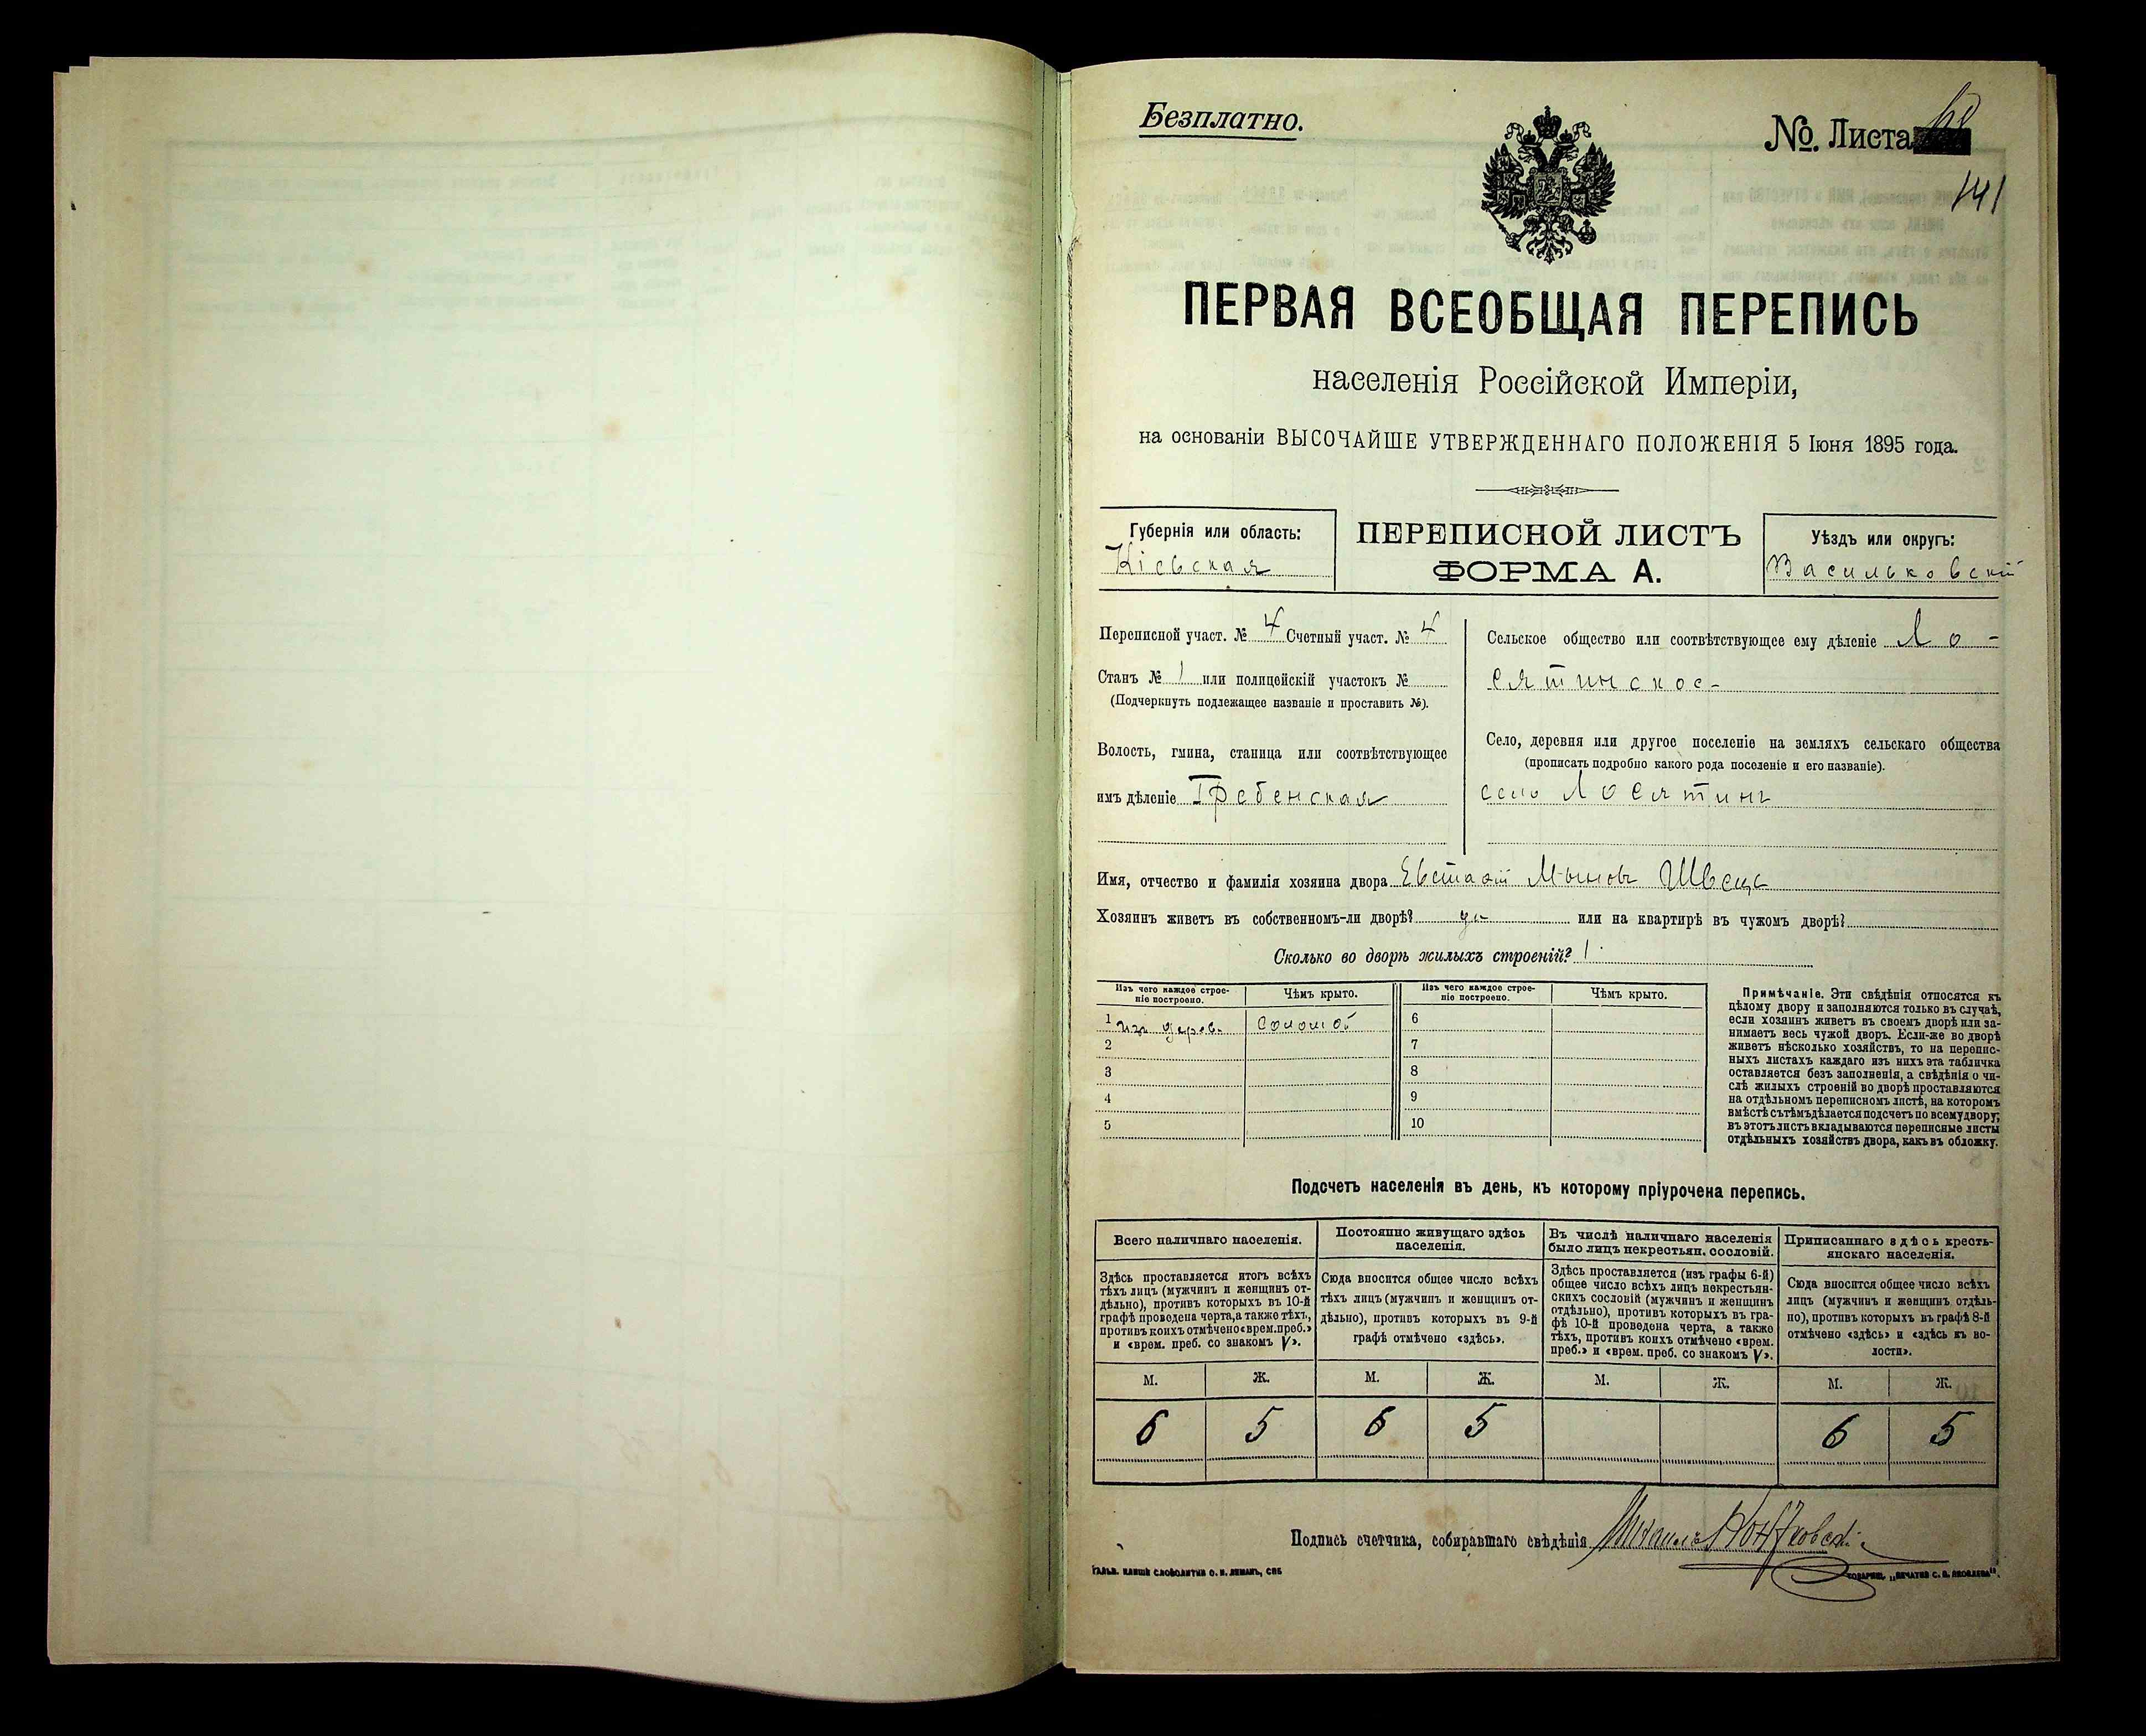 Безплатно.
№. Листа 68
141
ПЕРВАЯ ВСЕОБЩАЯ ПЕРЕПИСЬ
населенія Россійской Имперіи,
на основаніи ВЫСОЧАЙШЕ УТВЕРЖДЕННАГО ПОЛОЖЕНІЯ 5 Іюня 1895 года.
Губернія или область:
Кіевская
ПЕРЕПИСНОЙ ЛИСТЪ
ФОРМА А.
Уѣздъ или округъ:
Васильковскій
Переписной участ. № 4 Счетный участ. № 4
Станъ № 1 или полицейскій участокъ №
(Подчеркнуть подлежащее названіе и проставить №).
Волость, гмина, станица или соотвѣтствующее
имъ дѣленіе Гребенская
Сельское общество или соотвѣтствующее ему дѣленіе Ло-
сятинское
Село, деревня или другое поселеніе на земляхъ сельскаго общества
(прописать подробно какого рода поселеніе и его названіе).
село Лосятинъ
Имя, отчество и фамилія хозяина двора Евстафій Швецъ
Хозяинъ живетъ въ собственномъ-ли дворѣ? да или на квартирѣ въ чужомъ дворѣ?
Сколько во дворѣ жилыхъ строеній? 1
Изъ чего каждое строе-
ніе построено.
Чѣмъ крыто.
Изъ чего каждое строе-
ніе построено.
Чѣмъ крыто.
1 изъ дерев. соломой 6
2 7
3 8
4 9
5 10
Примѣчаніе. Эти свѣдѣнія относятся къ
цѣлому двору и заполняются только въ случаѣ,
если хозяинъ живетъ въ своемъ дворѣ или за-
нимаетъ весь чужой дворъ. Если-же во дворѣ
живетъ нѣсколько хозяйствъ, то на перепис-
ныхъ листахъ каждаго изъ нихъ эта табличка
оставляется безъ заполненія, а свѣдѣнія о чи-
слѣ жилыхъ строеній во дворѣ проставляются
на отдѣльномъ переписномъ листѣ, на которомъ
вмѣстѣ съ тѣмъ дѣлается подсчетъ по всему двору;
въ этотъ листъ вкладываются переписные листы
отдѣльныхъ хозяйствъ двора, какъ въ обложку.
Подсчетъ населенія въ день, къ которому пріурочена перепись.
Всего наличнаго населенія.
Здѣсь проставляется итогъ всѣхъ
тѣхъ лицъ (мужчинъ и женщинъ от-
дѣльно), противъ которыхъ въ 10-й
графѣ проведена черта, а также тѣхъ,
противъ коихъ отмѣчено «врем. преб.»
и «врем. преб. со знакомъ V».
Постоянно живущаго здѣсь
населенія.
Сюда вносится общее число всѣхъ
тѣхъ лицъ (мужчинъ и женщинъ от-
дѣльно), противъ которыхъ въ 9-й
графѣ отмѣчено «здѣсь».
Въ числѣ наличнаго населенія
было лицъ некрестьян. сословій.
Здѣсь проставляется (изъ графы 6-й)
общее число всѣхъ лицъ некрестьян-
скихъ сословій (мужчинъ и женщинъ
отдѣльно), противъ которыхъ въ гра-
фѣ 10-й проведена черта, а также
тѣхъ, противъ коихъ отмѣчено «врем.
преб.» и «врем. преб. со знакомъ V».
Приписаннаго здѣсь кресть-
янскаго населенія.
Сюда вносится общее число всѣхъ
лицъ (мужчинъ и женщинъ отдѣль-
но), противъ которыхъ въ графѣ 8-й
отмѣчено «здѣсь» и «здѣсь въ во-
лости».
М. Ж. М. Ж. М. Ж. М. Ж.
6 5 6 5 6 5
Подпись счетчика, собиравшаго свѣдѣнія
ГАЛЬВ. КЛИШЕ СЛОВОЛИТНИ О. И. ЛЕМАНЪ, СПБ
ТОВАРИЩ. „ПЕЧАТНЯ С. П. ЯКОВЛЕВА".